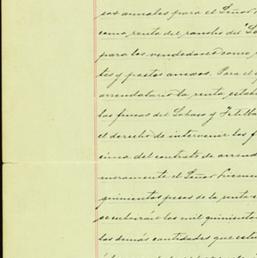 sos anuales para el Señor
como renta del rancho del
para los vendedores como ren
tes y pastos anexos. Para el
arrendatario la renta estab
las fincas del Sobaco y
el derecho de intervenir los
cima del contrato de arrend
moramente el Señor Licenci
quinientos pesos de la renta
se cubrirán los mil quinientos
las demás cantidades que